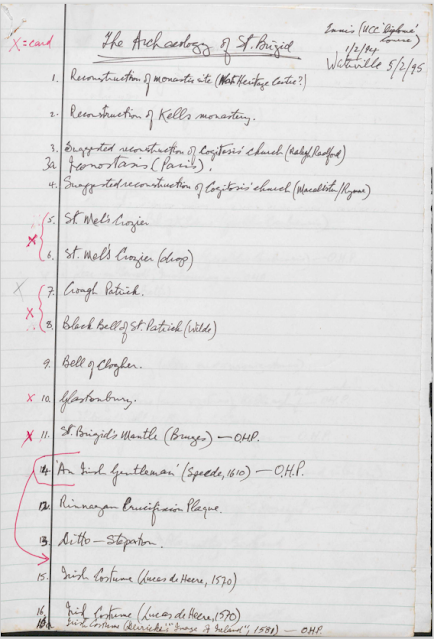 X = card
The Archaeology of St. Brigid
Ennis (UCC Diploma Course)
1/2/94
Waterville 5/2/95
1. Reconstruction of monastic site (Heritage Centre?)
2. Reconstruction of Kells monastery.
3. Suggested reconstruction of Cogitosis' church (Raleigh Radford)
3a Iconostasis (Paris).
4. Suggested reconstruction of Cogitosis' church (Macalister/Rynne)
X 5. St. Mel's Crozier
6. St. Mel's Crozier (drop)
X X 7. Crough Patrick.
8. Black Bell of St. Patrick (Wilde)
9. Bell of Clogher.
X 10. Glastonbury.
X 11. St. Brigid's Mantle (Bruges) — O.H.P.
14. 'An Irish Gentleman' (Speede, 1610) — O.H.P.
12. Rinnagan Crucifixion Plaque.
13. Ditto —
15. Irish Costume (Lucas de Heere, 1570)
16. Irish Costume (Lucas de Heere, 1570)
Irish Costume (Derricke's "Image of Ireland", 1581) — OHP